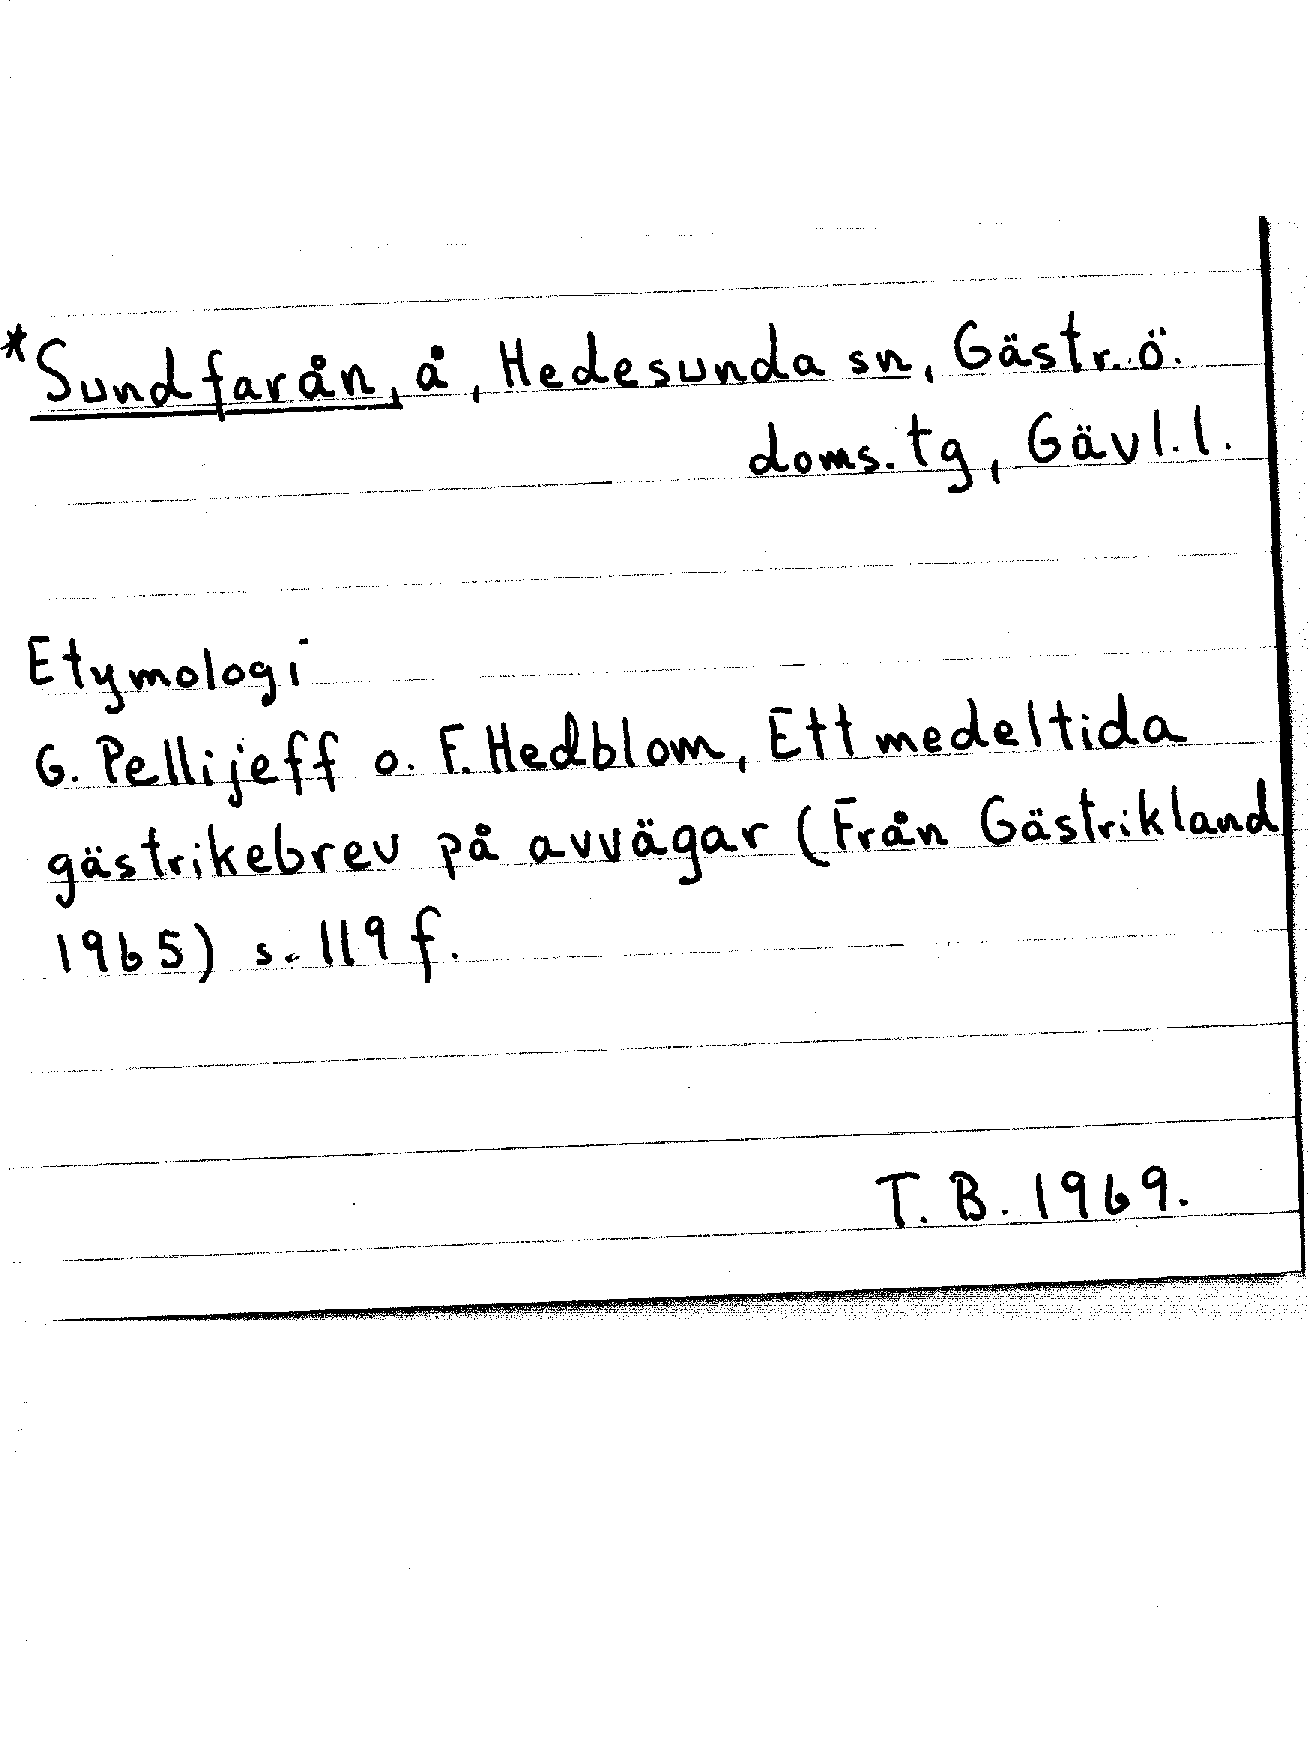 *Sundfarån, å, Hedesunda sn, Gästr. ö.
doms. tg, Gävl. l.
Etymologi
G. Pellijeff o. F. Hedblom, Ett medeltida
gästrikebrev på avvägar (Från Gästrikland
1965) s. 119 f.
T. B. 1969.